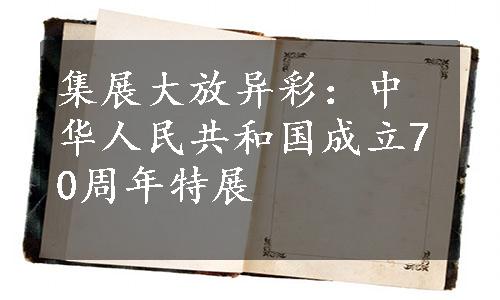 集展大放异彩：中
华人民共和国成立7
0周年特展